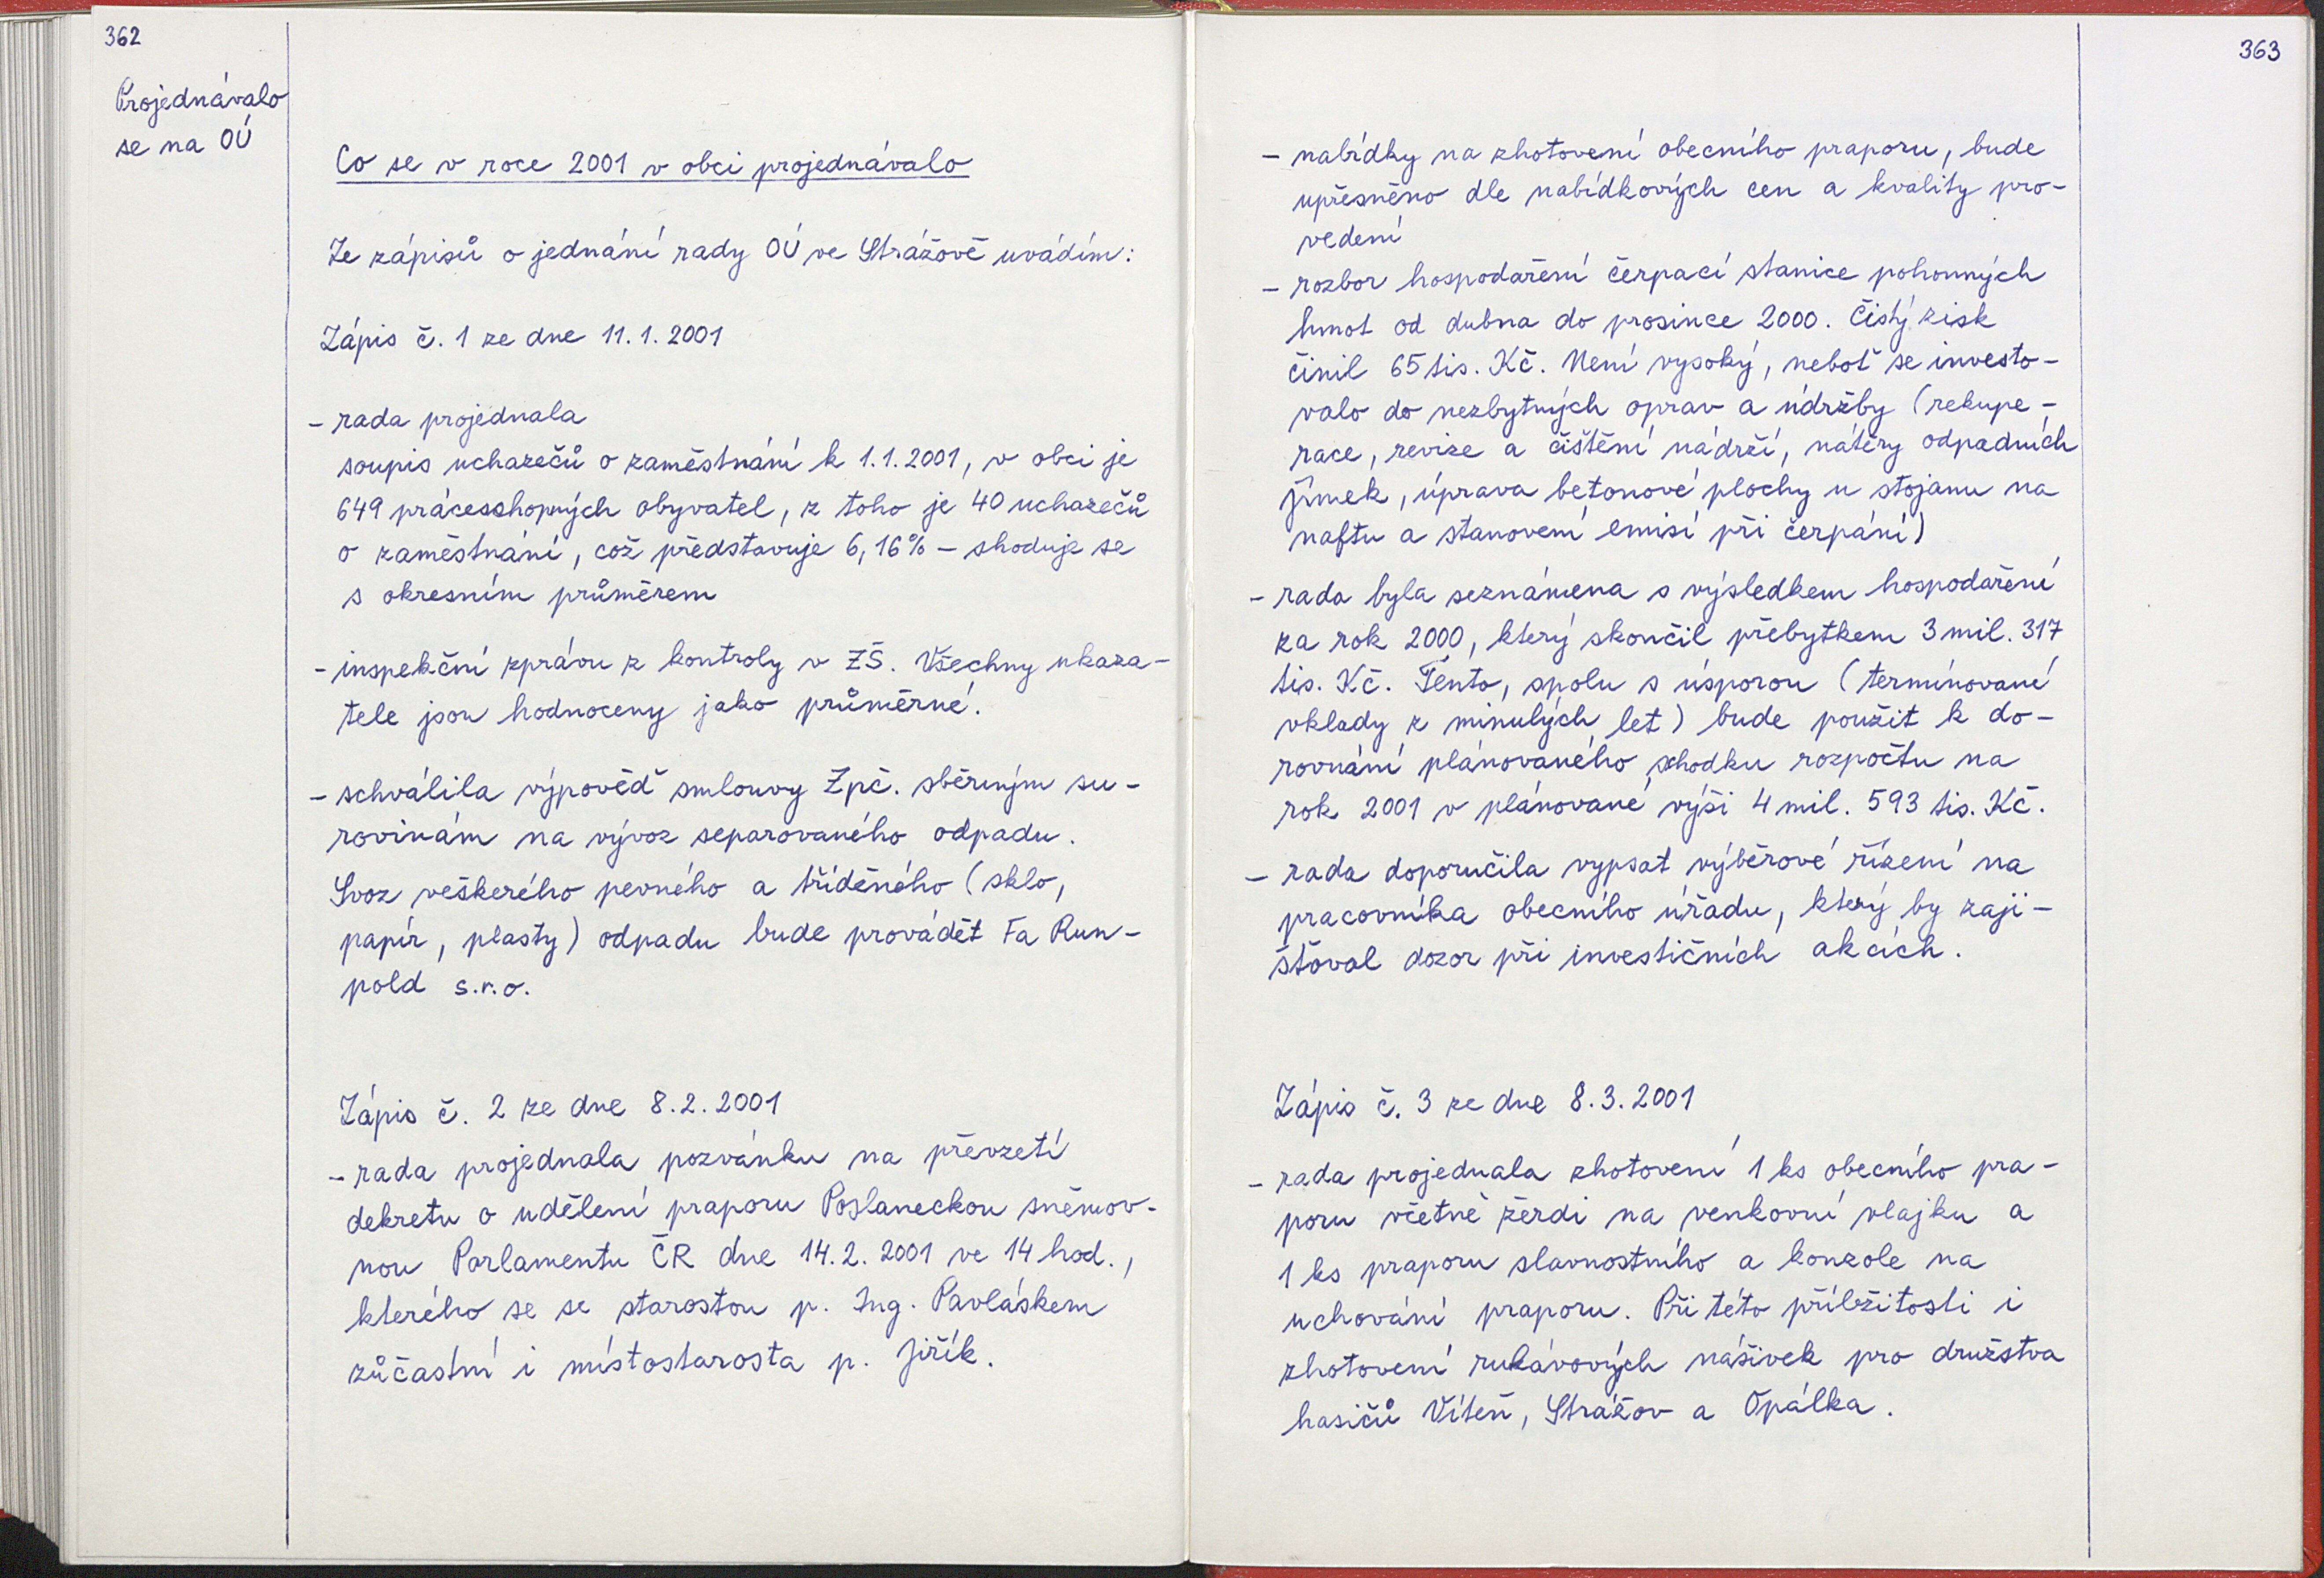 362
Projednávalo
se na OÚ
Co se v roce 2001 v obci projednávalo
Ze zápisů o jednání rady OÚ ve Strážově uvádím:
Zápis č. 1 ze dne 11. 1. 2001
- rada projednala
soupis uchazečů o zaměstnání k 1. 1. 2001, v obci je
649 práceschopných obyvatel, z toho je 40 uchazečů
o zaměstnání, což představuje 6,16% - shoduje se
s okresním průměrem
- inspekční zprávu z kontroly v ZŠ. Všechny ukaza-
tele jsou hodnoceny jako průměrné.
- schválila výpověď smlouvy Zpč. sběrným su-
rovinám na vývoz separovaného odpadu.
Svoz veškerého pevného a tříděného (sklo,
papír, plasty) odpadu bude provádět Fa Run-
pold s.r.o.
Zápis č. 2 ze dne 8. 2. 2001
- rada projednala pozvánku na převzetí
dekretu o udělení praporu Poslaneckou sněmov-
nou Parlamentu ČR dne 14. 2. 2001 ve 14 hod.,
kterého se se starostou p. Ing. Pavláskem
zůčastní i místostarosta p. Jiřík.
363
- nabídky na zhotovení obecního praporu, bude
upřesněno dle nabídkových cen a kvality pro-
vedení
- rozbor hospodaření čerpací stanice pohonných
hmot od dubna do prosince 2000. Čistý zisk
činil 65 tis. Kč. Není vysoký, neboť se investo-
valo do nezbytných oprav a údržby (rekupe-
race, revize a čištění nádrží, nátěry odpadních
jímek, úprava betonové plochy u stojanu na
naftu a stanovení emisí při čerpání)
- rada byla seznámena s výsledkem hospodaření
za rok 2000, který skončil přebytkem 3 mil. 317
tis. Kč. Tento, spolu s úsporou (termínované
vklady z minulých let) bude použit k do-
rovnání plánovaného schodku rozpočtu na
rok 2001 v plánované výši 4 mil. 593 tis. Kč.
- rada doporučila vypsat výběrové řízení na
pracovníka obecního úřadu, který by zaji-
šťoval dozor při investičních akcích.
Zápis č. 3 ze dne 8. 3. 2001
- rada projednala zhotovení 1 ks obecního pra-
poru včetně žerdi na venkovní vlajku a
1 ks praporu slavnostního a konzole na
uchování praporu. Při této příležitosti i
zhotovení rukávových nášivek pro družstva
hasičů Víteň, Strážov a Opálka.